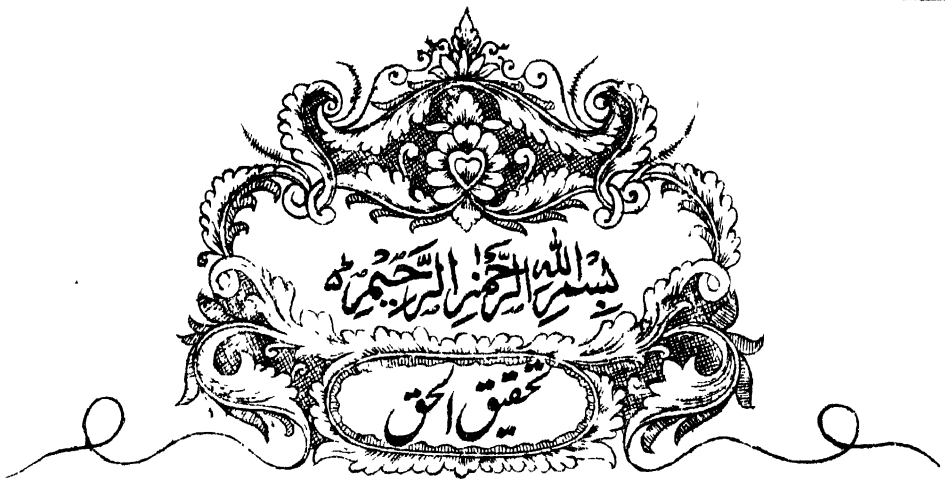 بِسْمِ اللّٰهِ الرَّحْمٰنِ الرَّحِيْمِ ط
تحقیق الحق